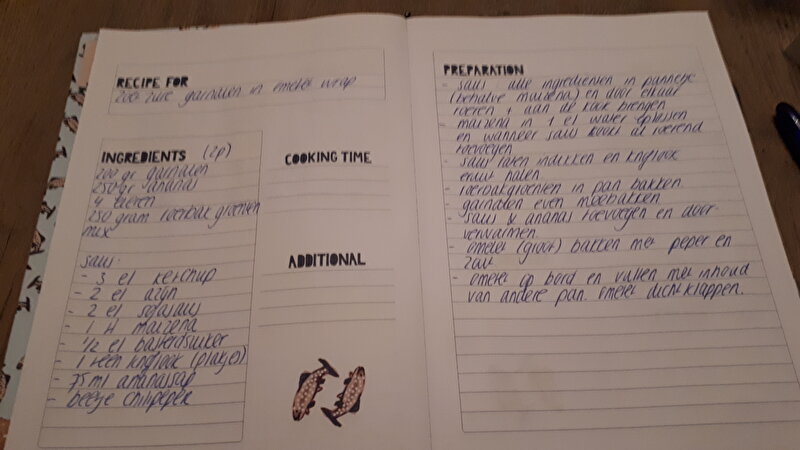 RECIPE FOR
zoet zure garnalen in omelet wrap
INGREDIENTS (2p)
200 gr garnalen
250 gr ananas
4 eieren
250 gram roerbak groenten
mix
saus:
- 3 el ketchup
- 2 el azijn
- 2 el sojasaus
- 1 tl maizena
- 1/2 el basterdsuiker
- 1 teen knoflook (plakjes)
- 75 ml ananassap
- beetje chilipeper
COOKING TIME
ADDITIONAL
PREPARATION
- saus alle ingredienten in pannetje
(behalve maizena) en door elkaar
roeren + aan de kook brengen
- maizena in 1 el water oplossen
en wanneer saus kookt al roerend
toevoegen
- saus laten indikken en knoflook
eruit halen
- roerbakgroenten in pan bakken
garnalen even meebakken
- saus & ananas toevoegen en door-
verwarmen.
- omelet (groot) bakken met peper en
zout
- omelet op bord en vullen met inhoud
van andere pan. omelet dichtklappen.